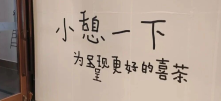 小憩一下
为呈现更好的喜茶